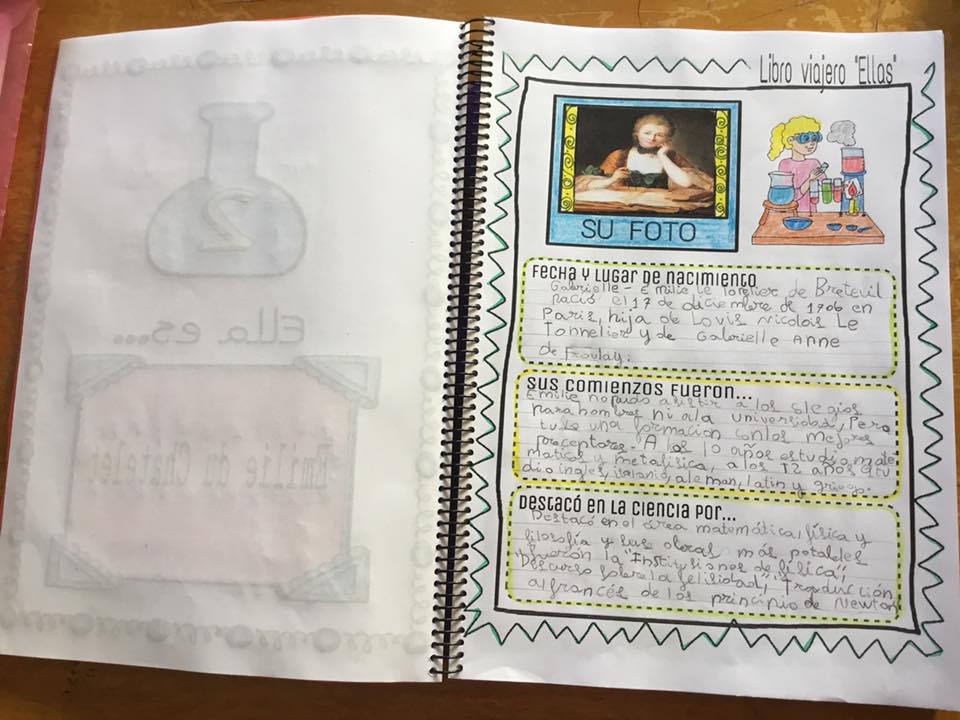 2
Ella es...
Emilie du Chatelet
Libro viajero "Ellas"
SU FOTO
Fecha y lugar de nacimiento
Gabrielle - Emilie le Tonelier de Breteuil
nació el 17 de diciembre de 1706 en
Paris, hija de Lovis Nicolois Le
Tonnelier y de Gabrielle Anne
de Froulay.
Sus comienzos fueron...
Emilie no pudo asistir a los colegios
para hombres ni a la universidad, Pero
tubo una formacion con los mejores
preceptores- A los 10 años estudio mate
matica y metafisica, a los 12 años estu
dio ingles, italiano, aleman, latin y griego.
Destacó en la ciencia por...
Destacó en el área matemática, física y
filosofía y sus obras más notables
fuerón la "Institusiones de fisica",
"Discurso sobre la felisidad", Traducción
al francés de los principio de Newton